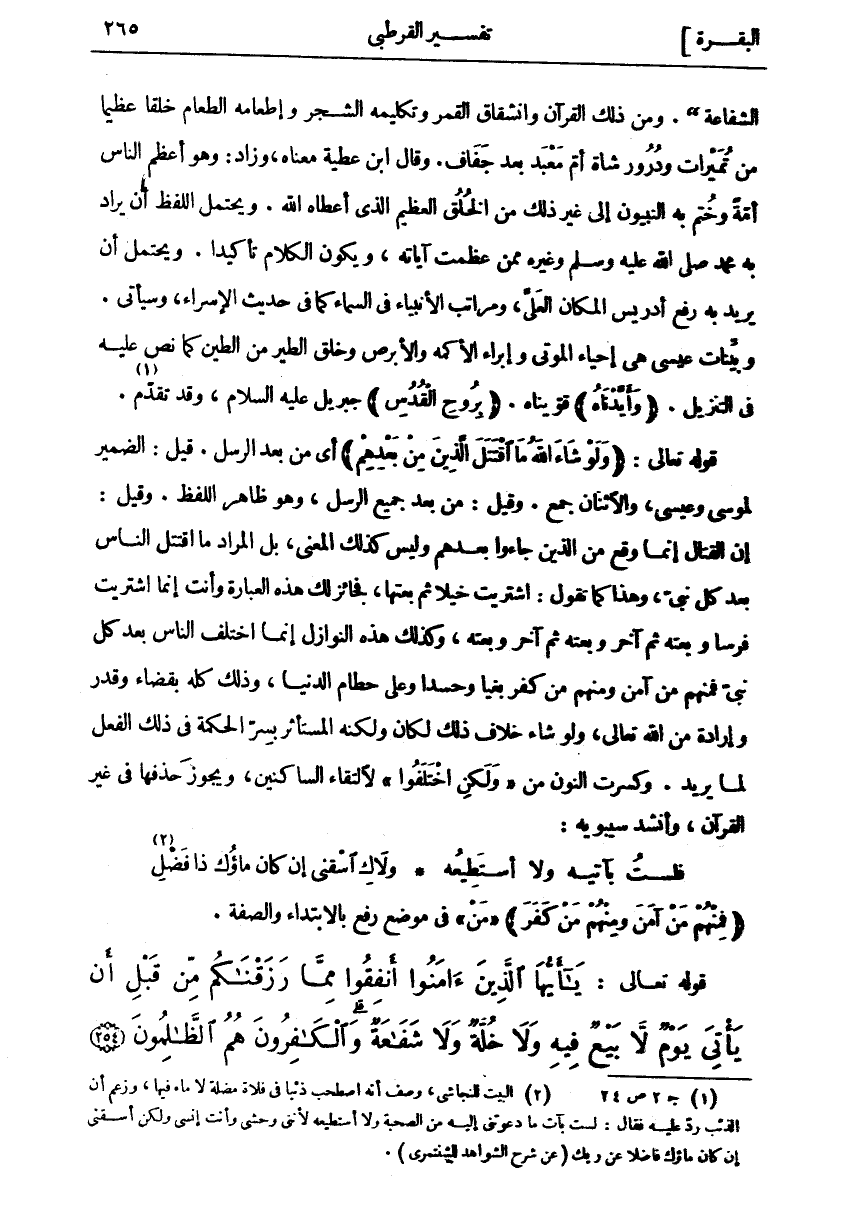 البقـــرة ]
تفســـير القرطبى
٢٦٥
الشفاعة " . ومن ذلك القرآن وانشقاق القمر وتكليمه الشـــجر و إطعامه الطعام خلقا عظيما
من تُمَيْرات ودُرُور شاة أم مَعْبَد بعد جَفَاف . وقال ابن عطية معناه ، وزاد : وهو أعظم الناس
أمّةً وخُتم به النبيون إلى غير ذلك من الخُلُق العظيم الذى أعطاه الله . ويحتمل اللفظ أن يراد
به محمد صلى الله عليه وسلم وغيره ممن عظمت آياته ، ويكون الكلام تأكيدا . ويحتمل أن
يريد به رفع أدريس المكان العَلىَّ ، ومراتب الأنبياء فى السماء كما فى حديث الإسراء ، وسيأتى .
و بيّنات عيسى هى إحياء الموتى و إبراء الأكمه والأبرص وخلق الطير من الطين كما نص عليــه
فى التنزيل . ( وَأَيَّدْنَاهُ ) قوّيناه . ( بِرُوحِ الْقُدُسِ ) جبريل عليه السلام ، وقد تقدّم (١) .
قوله تعالى : ( وَلَوْ شَاءَ اللهُ مَا اقْتَتَلَ الَّذِينَ مِنْ بَعْدِهِمْ ) أى من بعد الرسل . قيل : الضمير
لموسى وعيسى ، والاثنان جمع . وقيل : من بعد جميع الرسل ، وهو ظاهر اللفظ . وقيل :
إن القتال إنمــا وقع من الذين جاءوا بعــدهم وليس كذلك المعنى ، بل المراد ما اقتتل النــاس
بعد كل نبىّ ، وهذا كما تقول : اشتريت خيلا ثم بعتها ، فجائز لك هذه العبارة وأنت إنما اشتريت
فرسا و بعته ثم آخر و بعته ثم آخر و بعته ، وكذلك هذه النوازل إنمــا اختلف الناس بعد كل
نبىّ فمنهم من آمن ومنهم من كفر بغيا وحسدا وعلى حطام الدنيــا ، وذلك كله بقضاء وقدر
و إرادة من الله تعالى ، ولو شاء خلاف ذلك لكان ولكنه المستأثر بسرّ الحكمة فى ذلك الفعل
لمــا يريد . وكسرت النون من « وَلَكِنِ اخْتَلَفُوا » لالتقاء الساكنين ، ويجوز حذفها فى غير
القرآن ، وأنشد سيبويه :
فلســتُ بآتيــه ولا أســتَطِيعُه * ولَاكِ اسْقنى إن كان ماؤك ذا فَضْلِ (٢)
( فَمِنْهُمْ مَنْ آمَنَ وَمِنْهُمْ مَنْ كَفَرَ ) «مَنْ» فى موضع رفع بالابتداء والصفة .
قوله تعــالى : يَـٰٓأَيُّهَا ٱلَّذِينَ ءَامَنُوٓا۟ أَنفِقُوا۟ مِمَّا رَزَقْنَـٰكُم مِّن قَبْلِ أَن
يَأْتِىَ يَوْمٌ لَّا بَيْعٌ فِيهِ وَلَا خُلَّةٌ وَلَا شَفَـٰعَةٌ ۗ وَٱلْكَـٰفِرُونَ هُمُ ٱلظَّـٰلِمُونَ ٢٥٤
(١) جـ ٢ ص ٢٤ (٢) البيت للنجاشى ، وصف أنه اصطحب ذئبا فى فلاة مضلة لا ماء فيها ، وزعم أن
الذئب ردّ عليــه فقال : لست بآت ما دعوتنى إليــه من الصحبة ولا أستطيعه لأننى وحشى وأنت إنسى ولكن أســقنى
إن كان ماؤك فاضلا عن ريك ( عن شرح الشواهد للشنتمرى ) .